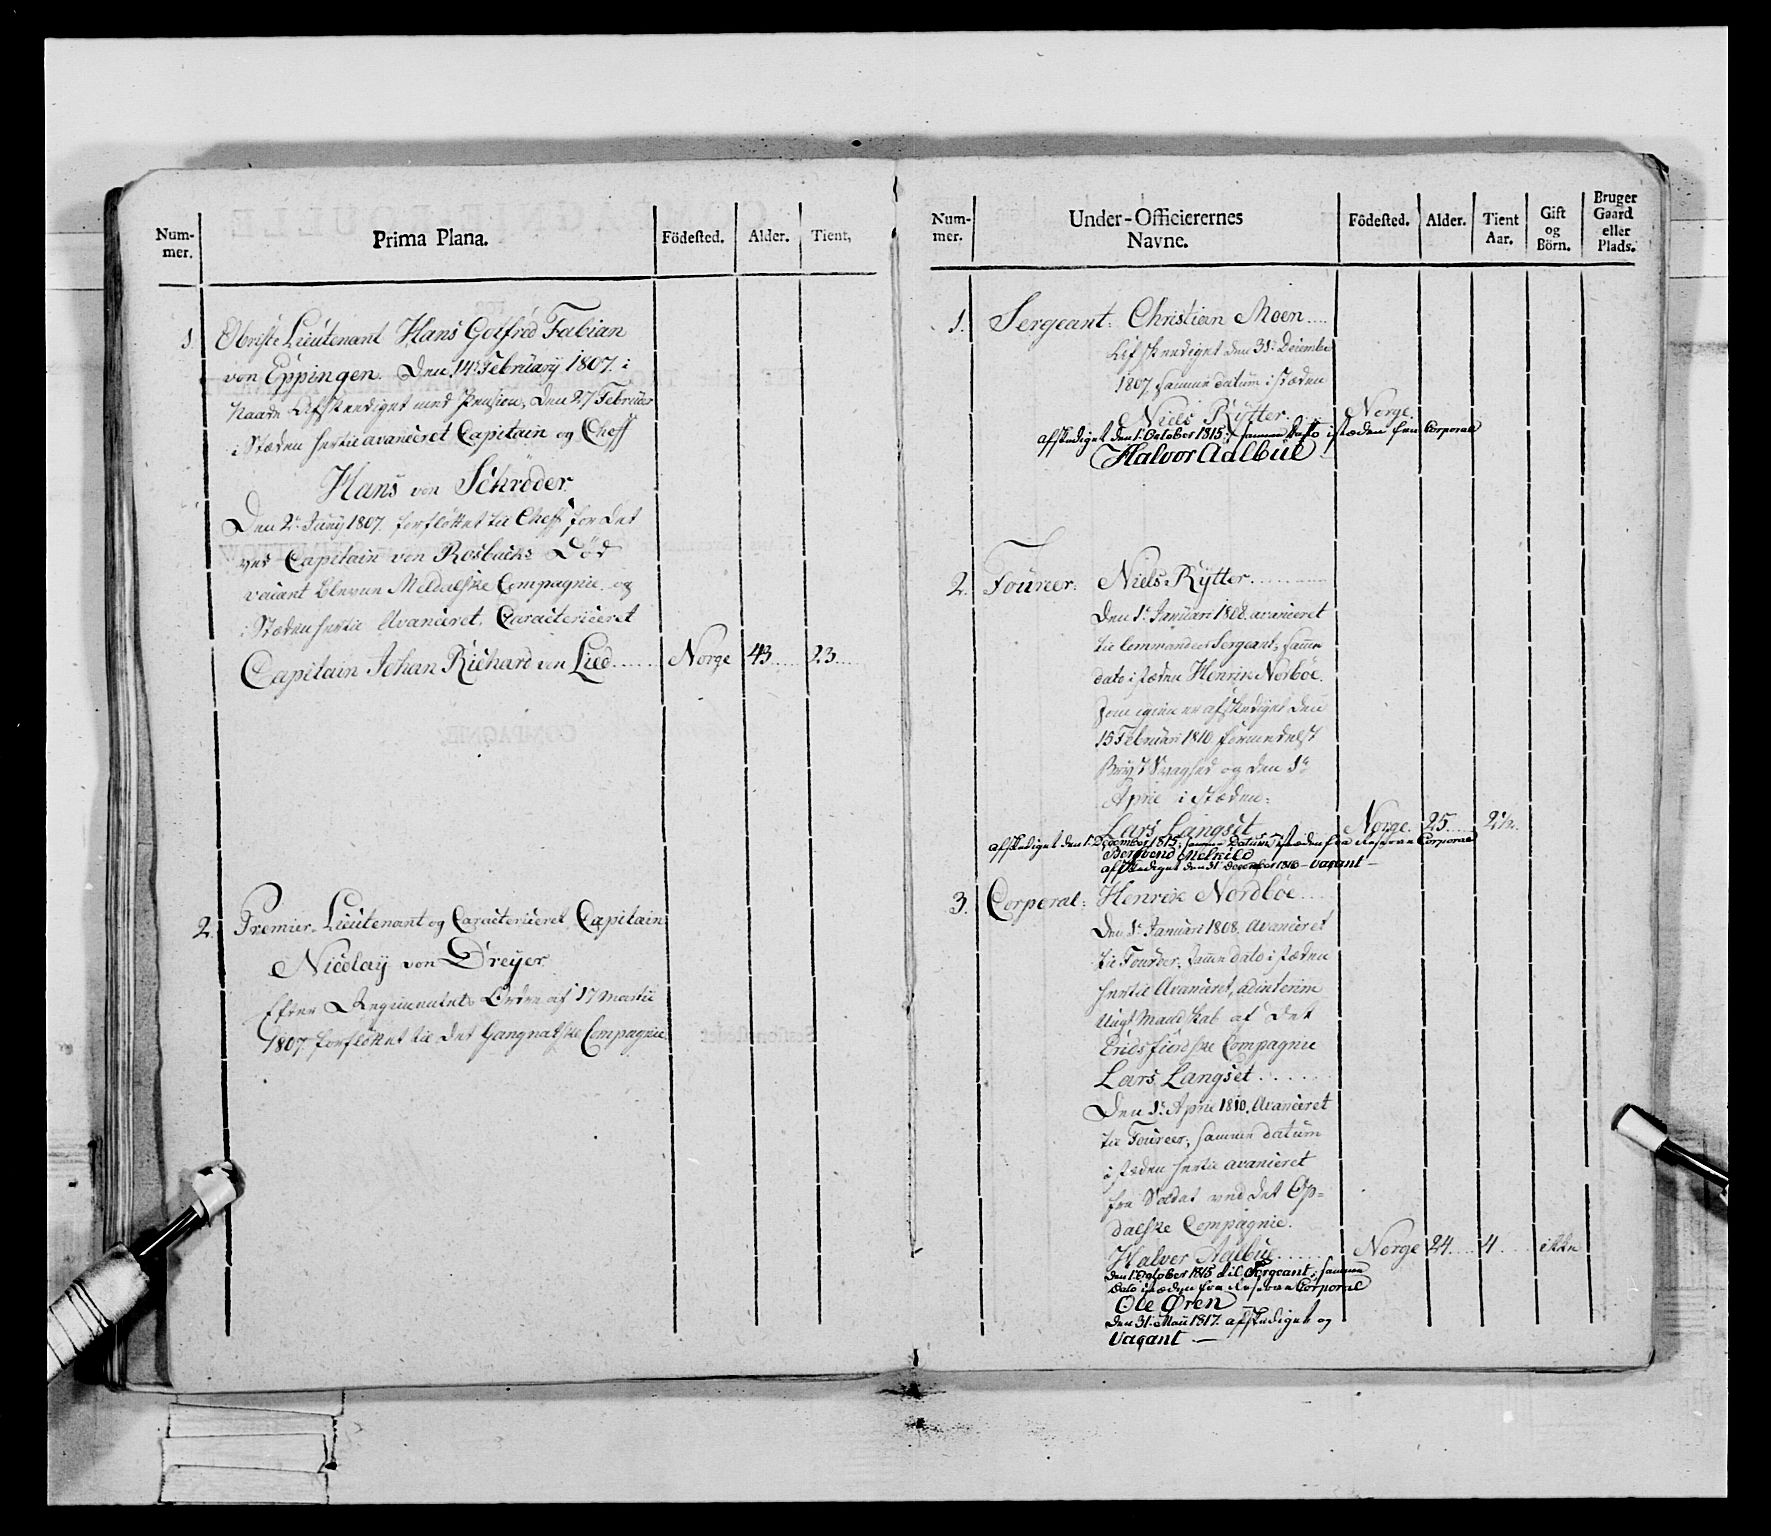 Num-
mer.
Prima Plana.
Födested.
Alder.
Tient,
1. Obriste Lieutenant Hans Gotfréd Fabian
von Eppingen. Den 14de February 1807. i
Naade Afskeediget med Pension, Den 27 Februar
i Stæden hertil avanceret Capitain og Cheff
Hans von Schrøder.
Den 2de Juny 1807. forflöttet til Cheff for det
ved Capitain von Rosbachs Död
vacant blevne Meldalske Compagnie og
i Stæden hertil Avanceret, Caracteriseret
Capitain Johan Richard von Lied...... Norge 43..... 23....
2. Premier-Lieutenant og Caracteriseret Capitain
Nicolay von Dreyer
Efter Regimentets Ordre af 17 Martii
1807 forflöttet til det Compagnie
Num-
mer.
Under-Officierernes
Navne.
Födested.
Alder.
Tient
Aar.
Gift
og
Börn.
Bruger
Gaard
eller
Plads.
1. Sergeant: Christian Moen....
Afskeediget den 31te Decembr
1807, samme datum i stæden
Niels Rÿtter...... Norge.
afskediget den 1te October 1815; samme Dato i stæden fra Corporal
Halvor Aalbue
2. Fourier: Niels Rÿtter............
Den 1te Januari 1808. avanceret
til Commandeer Sergeant, samme
dato i stæden Henrik Norböe.
som igien er afskediget den
15 Februari 1810 formedelst
Bryst Svaghed og den 1te
April i stæden:
Lars Langset Norge. 25..... 2½.
afskediget den 1. December 1815; samme Datum i stæden fra Reserve Corporal
afskediget den 31te December 1816 – vacant –
3. Corporal: Henrik Nordböe....
Den 1te Januari 1808. Avanceret
til Fourier, samme dato i stæden
hertil Avanceret, ad interim
Mandskab af det
Compagnie
Lars Langset.......
Den 1te April 1810. Avanceret
til Foureer, samme datum
i stæden hertil avanceret
fra Soldat ved det Op=
dalske Compagnie.
Halvor Aalbue....... Norge 24.... 4... ikke
den 1te October 1815 til Sergeant, samme
Dato i stæden fra Reserve Corporal
Ole Øren
den 31. Maii 1817. afskediget og
Vacant —